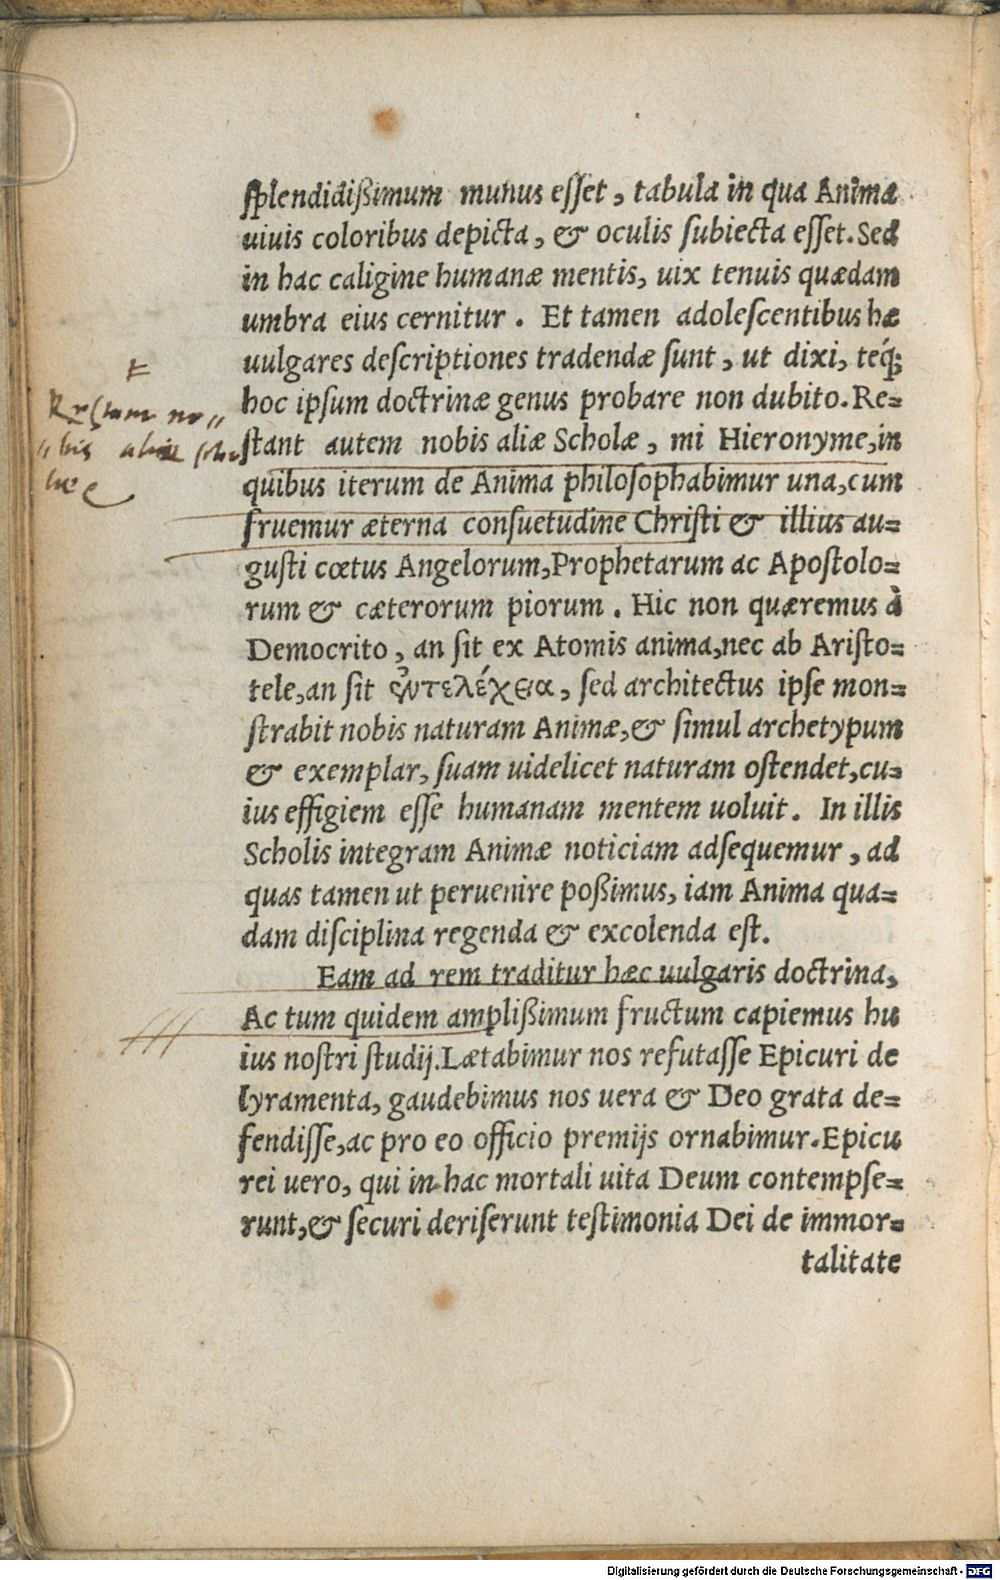 ſplendidißimum munus eſſet, tabula in qua Anima
uiuis coloribus depicta, & oculis ſubiecta eſſet. Sed
in hac caligine humanæ mentis, uix tenuis quædam
umbra eius cernitur. Et tamen adoleſcentibus hæ
uulgares deſcriptiones tradendæ ſunt, ut dixi, teq́;
hoc ipſum doctrinæ genus probare non dubito. Re=
ſtant autem nobis aliæ Scholæ, mi Hieronyme, in
quibus iterum de Anima philoſophabimur una, cum
fruemur æterna conſuetudine Chriſti & illius au=
guſti cœtus Angelorum, Prophetarum ac Apoſtolo=
rum & cæterorum piorum. Hic non quæremus à
Democrito, an ſit ex Atomis anima, nec ab Ariſto=
tele, an ſit ἐντελέχεια, ſed architectus ipſe mon=
ſtrabit nobis naturam Animæ, & ſimul archetypum
& exemplar, ſuam uidelicet naturam oſtendet, cu=
ius effigiem eſſe humanam mentem uoluit. In illis
Scholis integram Animæ noticiam adſequemur, ad
quas tamen ut peruenire poßimus, iam Anima qua=
dam diſciplina regenda & excolenda eſt.
Eam ad rem traditur hæc uulgaris doctrina,
Ac tum quidem amplißimum fructum capiemus hu
ius noſtri ſtudij. Lætabimur nos refutaſſe Epicuri de
lyramenta, gaudebimus nos uera & Deo grata de=
fendiſſe, ac pro eo officio premijs ornabimur. Epicu
rei uero, qui in hac mortali uita Deum contempſe=
runt, & ſecuri deriſerunt teſtimonia Dei de immor=
talitate
Reſtant no„
„bis aliæ ſcho
læ
Digitalisierung gefördert durch die Deutsche Forschungsgemeinschaft - DFG